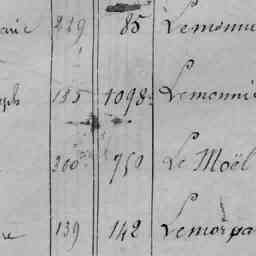 arie 229 85 Lemonni
ph 185 1098 Lemonni
360 750 Le Moël
re 139 142 Lemorpa